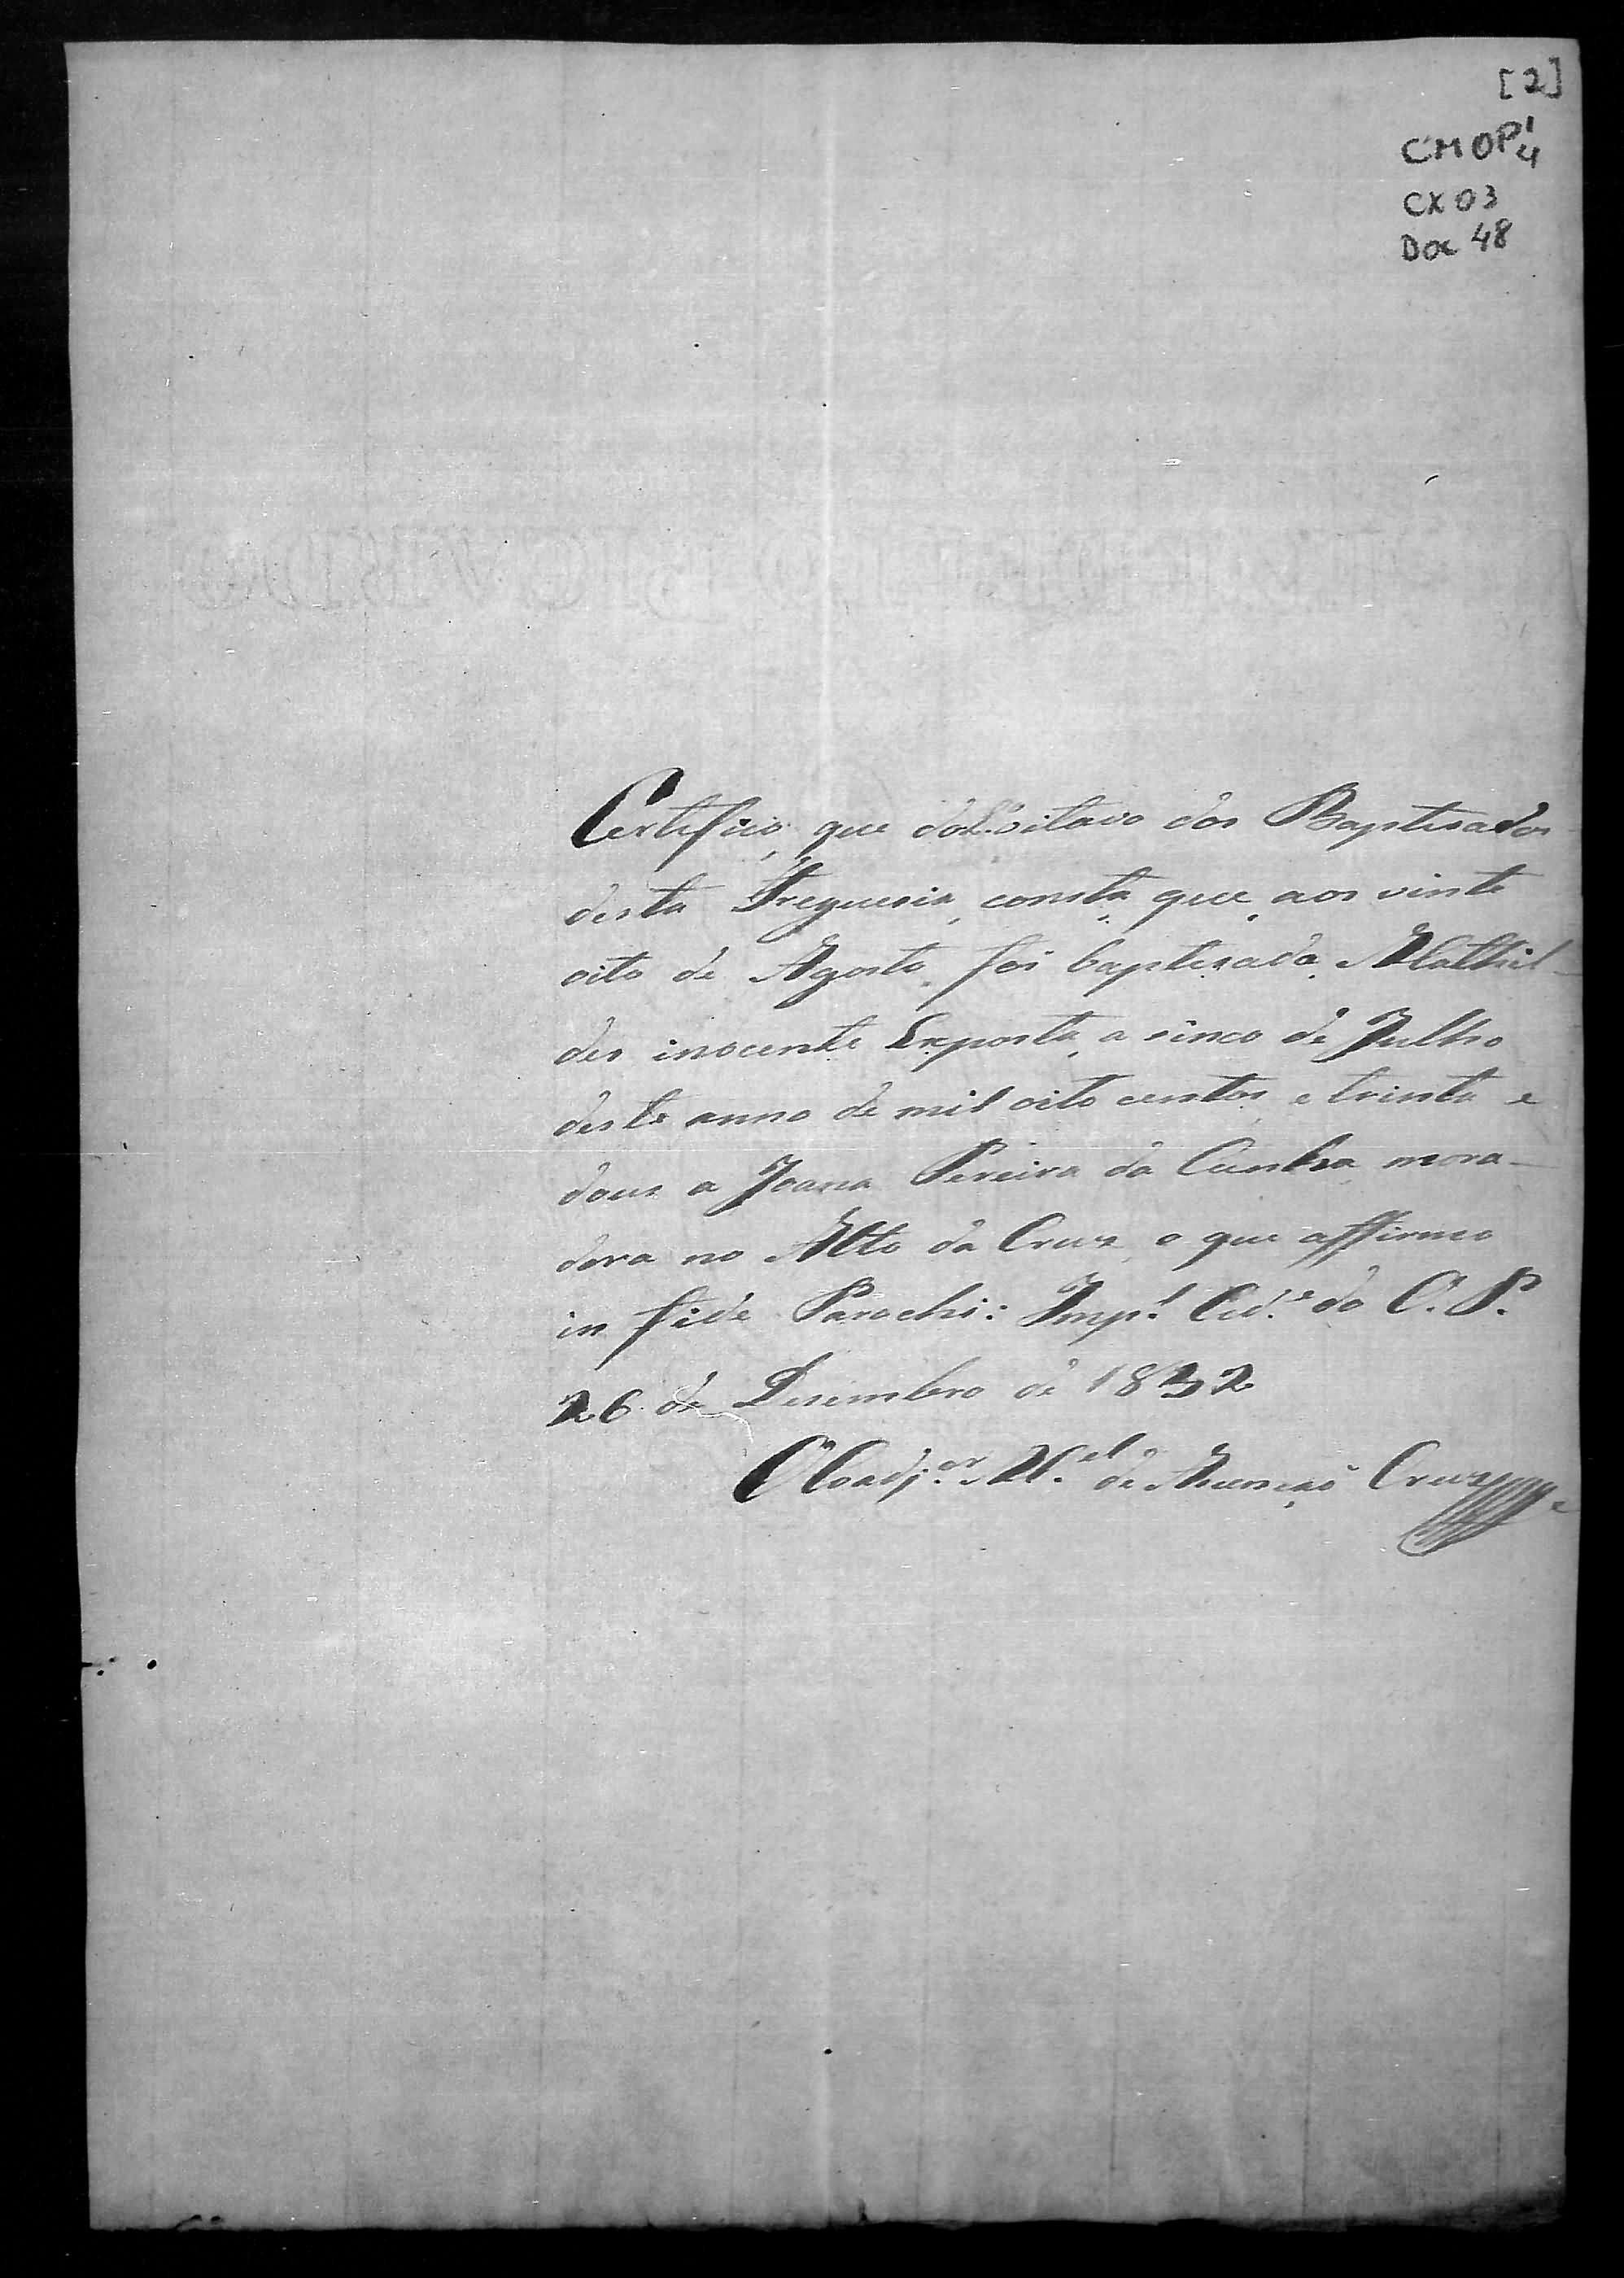 [2]
CMOP 1/4
CX 03
Doc 48
Certifico, que do L.º oitavo dos Baptisados
desta Freguesia, consta, que, aos vinte
oito de Agosto, foi baptisada, Mathil-
des inocente Exposta, a sinco de Julho
deste anno de mil oito centos, e trinta e
dous a Joana Pereira da Cunha mora-
dora no Alto da Cruz, o que affirmo
in fide Parochi: Imp.l Cid.e do O. P.
26 de Desembro de 1832
O Coadj.or M.el de Assumçaõ Cruz